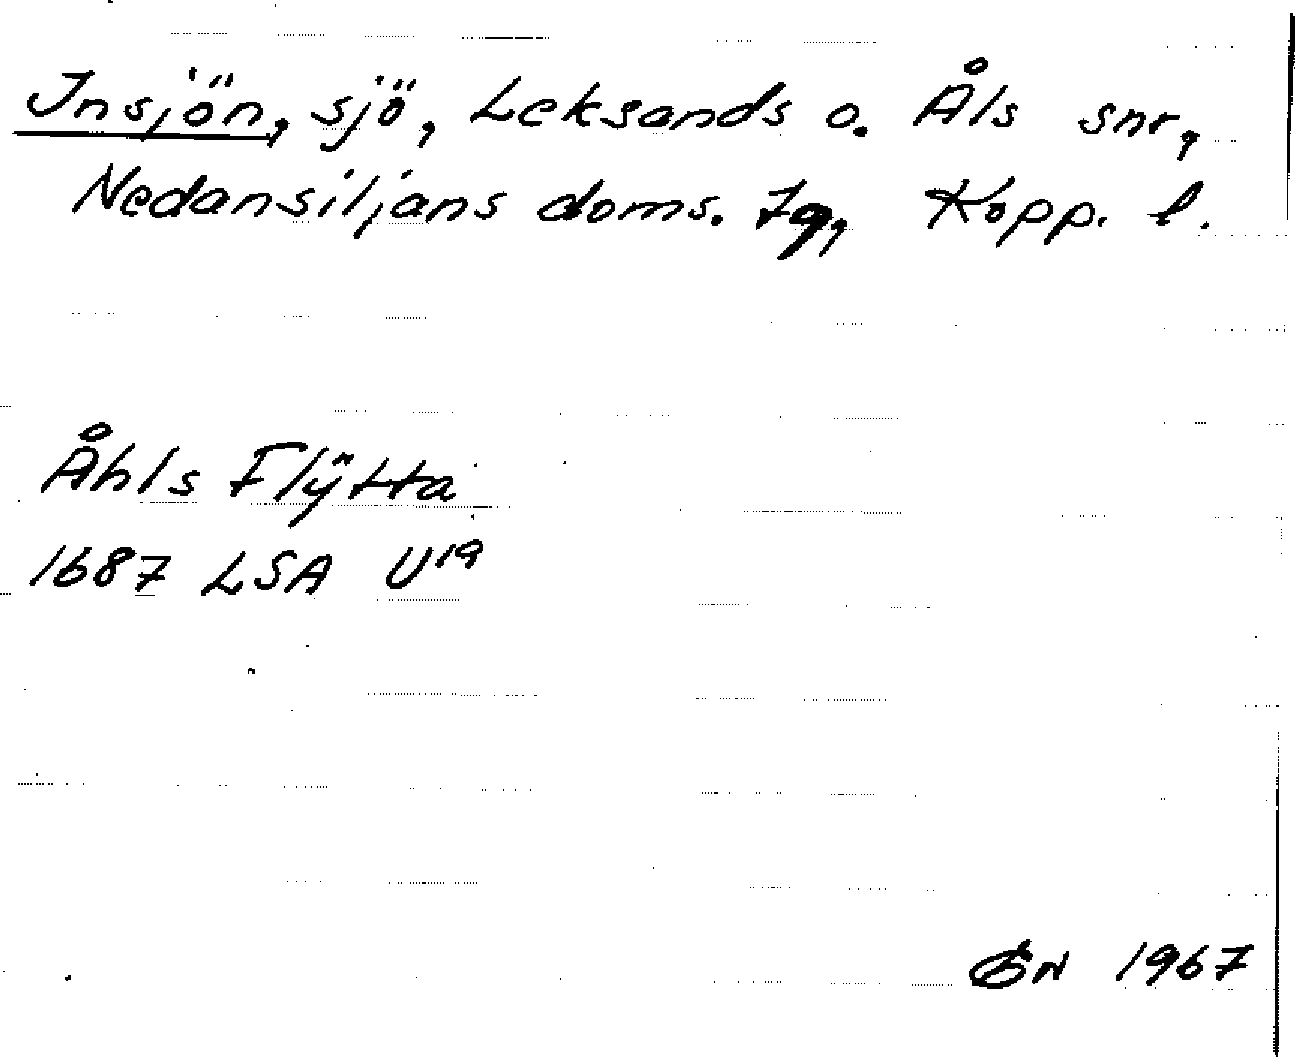 Insjön, sjö, Leksands o. Åls snr,
Nedansiljans doms. tg, Kopp. l.
Åhls Flÿtta
1687 LSA U19
ÖN 1967